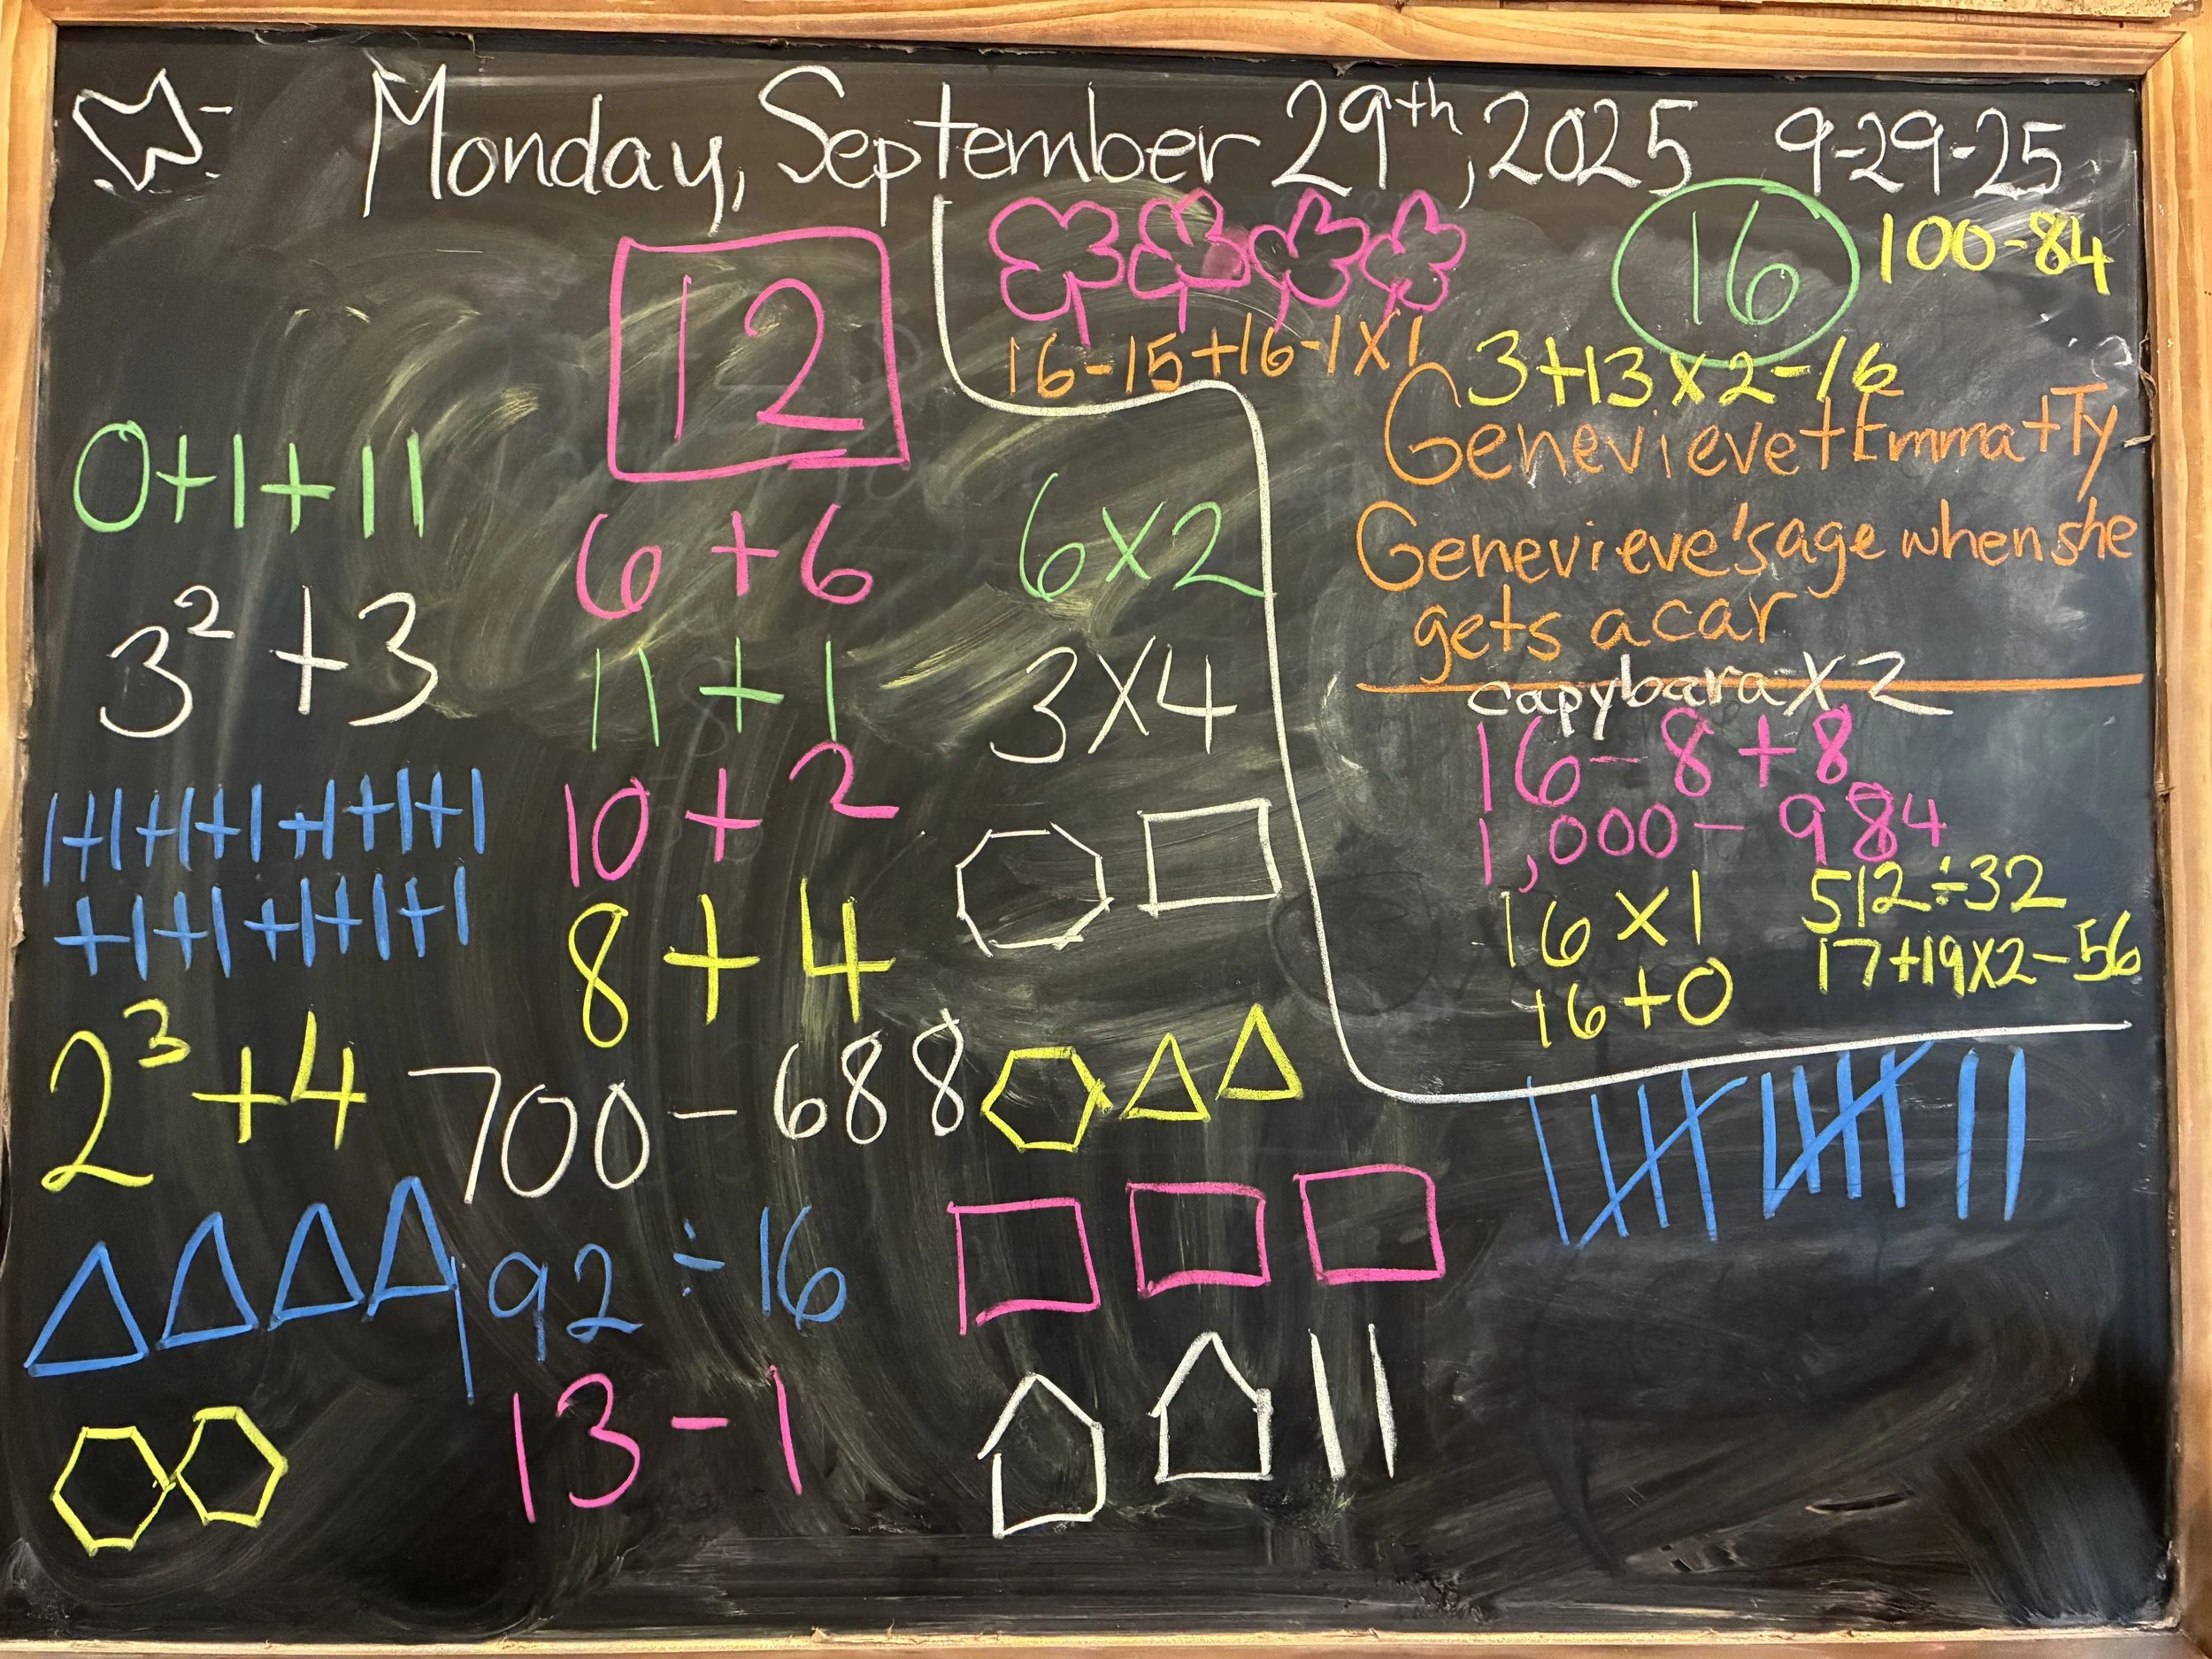 Monday, September 29th, 2025 9-29-25
12
0+1+11
6+6
6x2
3²+3
11+1
3x4
1+1+1+1+1+1+1
+1+1+1+1+1
10+2
8+4
2³+4
700-688
192÷16
13-1
16
100-84
16-15+16-1x1
3+13x2-16
Genevieve+Emma+Ty
Genevieve's age when she
gets a car
capybara x2
16-8+8
1,000-984
16x1
512÷32
17+19x2-56
16+0